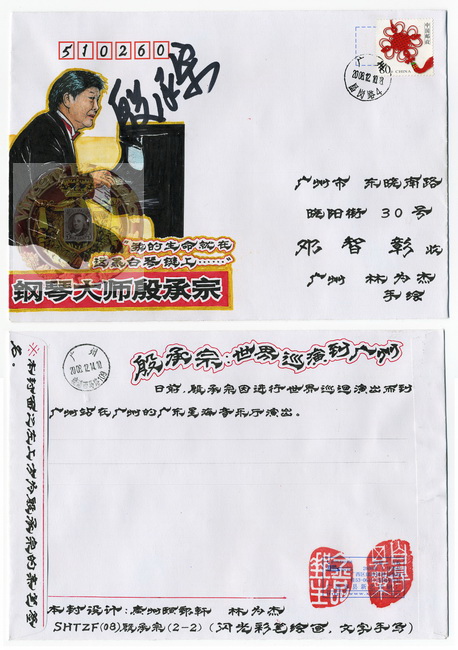 510260
中国邮政
80分 CHINA
广州
广州市 东晓南路
晓阳街 30号
邓智彰 收
广州 林为杰
手绘
"我的生命就在
这黑白琴键上……"
钢琴大师殷承宗
广州
殷承宗:世界巡演到广州
日前,殷承宗因进行世界巡回演出而到
广州站在广州的广东星海音乐厅演出。
※本封面为左上方为殷承宗的亲笔签
名。
本封设计: 林为杰
SHTZF(08)殷承宗(2-2)(闪光彩笔绘画,文字手写)